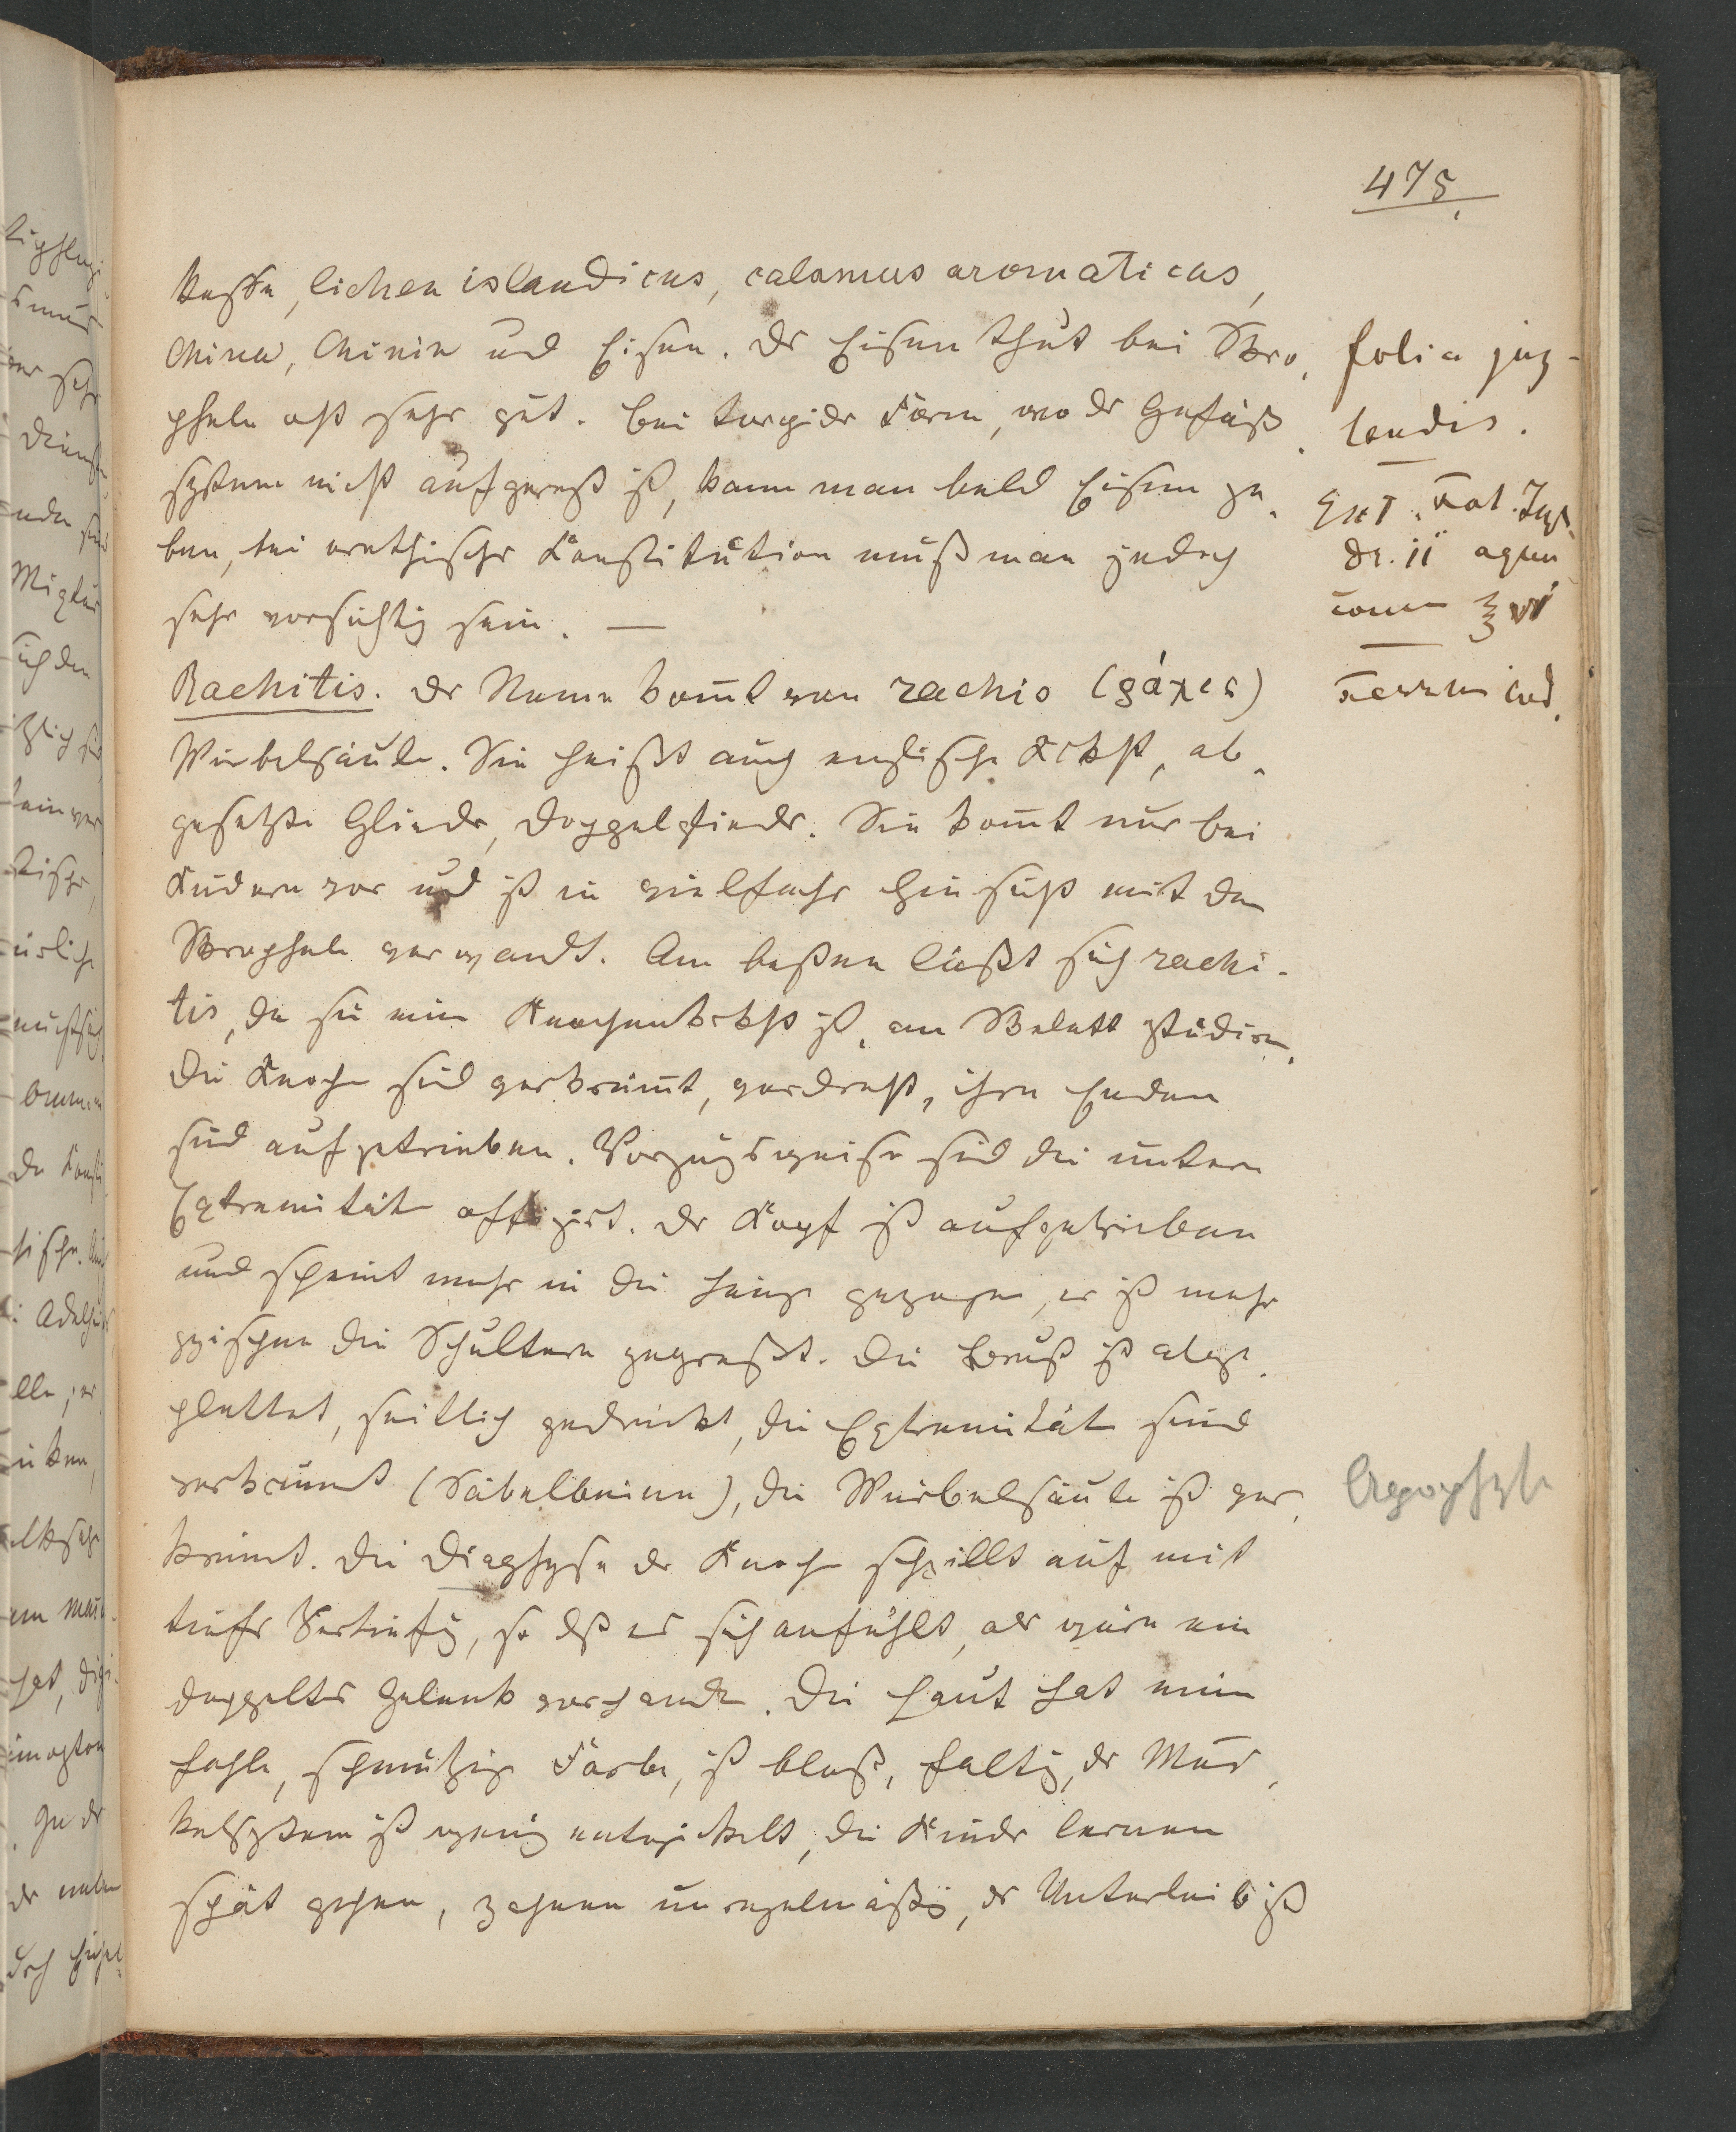 475.
kaffee, lichen islandicus, calamus aromaticus,
China, Chinin und Eisen. Ds Eisen thut bei Skro,
pheln oft sehr gut. Bei torpider Form, wo ds Gefäß,
system nicht aufgeregt ist, kann man bald Eisen ge,
ben, bei erethischer Konstitution muß man jedoch
sehr vorsichtig sein. —
Rachitis. Der Name kom̄t von rachis (ῥάχις)
Wirbelsäule. Sie heißt auch englische Krkht, ab,
gesetzte Glieder, Doppelglieder. Sie kom̄t nur bei
Kindern vor und ist in vielfacher Hinsicht mit den
Skropheln verwandt. Am besten läßt sich rachi-
tis, da sie eine Knochenkrkht ist, am Skelett studiren.
Die Knochen sind verkrüm̄t, verdreht, ihre Enden
sind aufgetrieben. Vorzugsweise sind die untern
Extremitäten affizirt. Der Kopf ist aufgetrieben
und scheint mehr in die Länge gezogen, er ist mehr
zwischen die Schultern gepreßt. Die Brust ist abge,
plattet, seitlich gedrückt, die Extremitäten sind
verkrüm̄t (Säbelbeine), die Wirbelsäule ist ver,
krüm̄t. Die Diaphyse der Knochen schwillt auf mit
tiefer Vertiefg, so dß es sich anfühlt, als wäre ein
doppeltes Gelenk vorhanden. Die Haut hat eine
fahle, schmutzige Farbe, ist blaß, faltig, ds Mus,
kelsystem ist wenig entwickelt, die Kinder lernen
spät gehen, zahnen unregelmäßig, der Unterleib ist
folia jug-
landis.
Ext. fol. Jugl.
dr. ii aquae
comm ℥ vi
Ferrum iod.
Apophyse